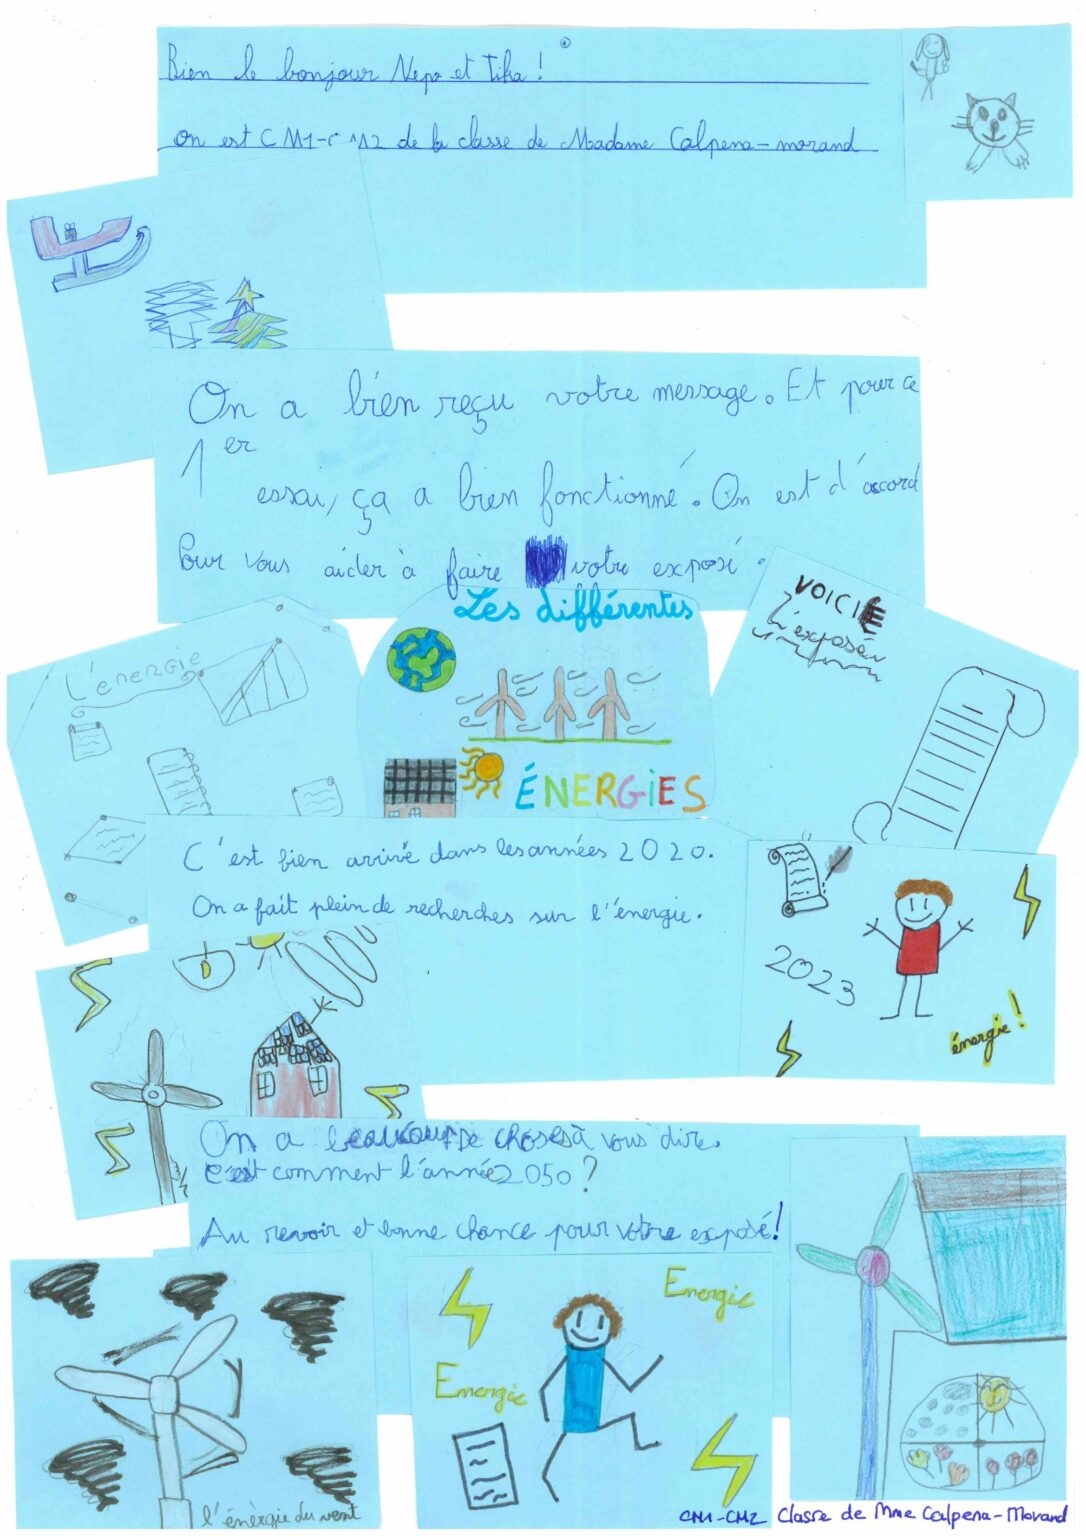 Bien le bonjour Nepo et Tika !
on est CM1-CM2 de la classe de Madame Calpena-morand
On a bien reçu votre message. Et pour ce
1er
essai, ça a bien fonctionné. On est d'accord
Pour vous aider à faire votre exposé.
Les différentes
ÉNERGiES
L'énergie
VOICI
L'exposé
C'est bien arrivé dans les années 2020.
On a fait plein de recherches sur l'énergie.
2023
énergie !
On a beaucoup de choses à vous dire.
c'est comment l'année 2050 ?
Au revoir et bonne chance pour votre exposé !
l'énèrgie du vent
Energie
Energie
CM1-CM2 Classe de Mme Calpena-Morand